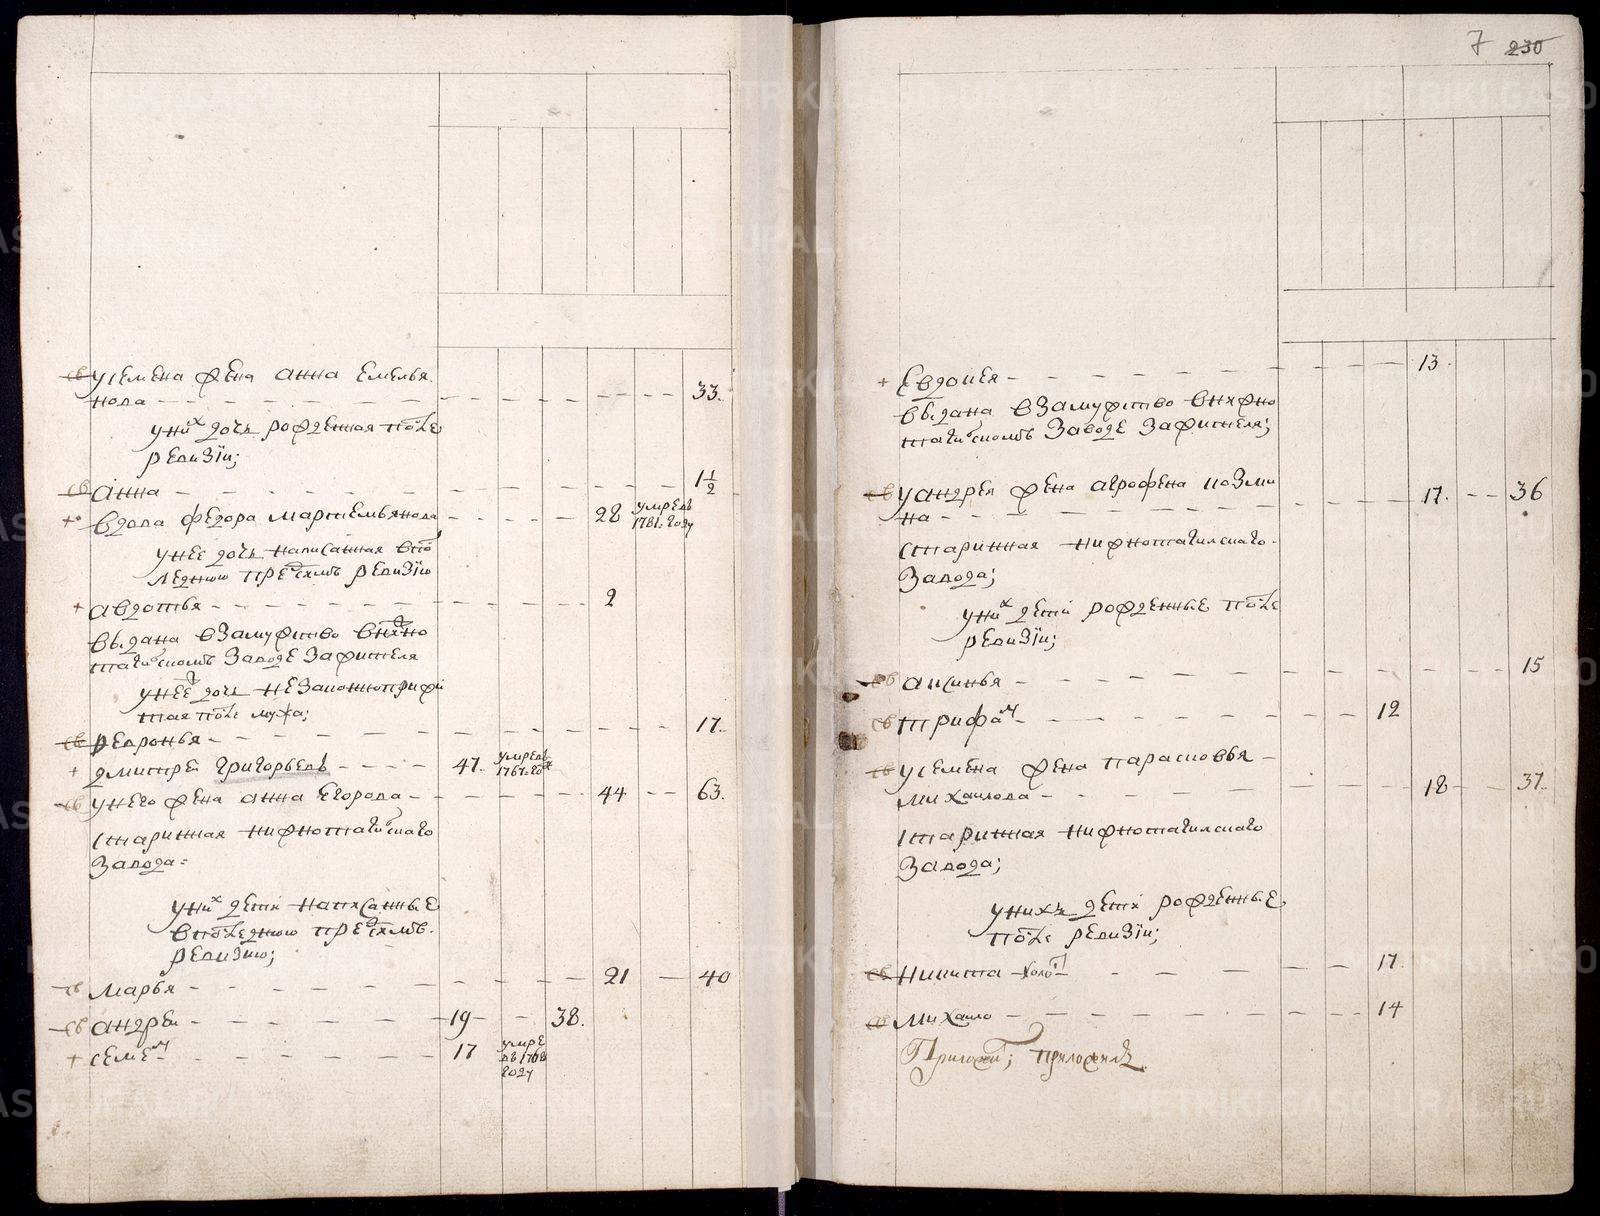 св усемена жена анна емелья
нова 33.
униˣ дочь рожденная после
ревизїи;
св анна 1½
+ вдова федора мартемьянова 28 умре въ
1781: году
унее дочь написанная впо
леднюю пре᷍жъ ревизїю
+ авдотья 2
выдана взамужство внижно
тагилскомъ заводе зажителя
унее дочь незаконноприжи
тая после мужа;
св федронья 17.
+ дмитрей григорьевъ 47. умре въ
1767: году
св унего жена анна егорова 44 63.
старинная нижнотагилскаго
завода:
униˣ дети написанные
впоследнюю пре᷍жъ
ревизию;
св марья 21 40
св андрей 19 38.
+ семен 17 умре
въ 1768
году
7 230
+ Евдокея 13
выдана взамужство внижно
тагилскомъ заводе зажителя;
св уандрея жена агрофена козми
на 17. 36
старинная нижнотагилскаго
завода;
униˣ дети рожденные после
ревизїи;
св аксинья 15
св трифан 12
св усемена жена парасковья
михаилова 18 37.
старинная нижнотагилскаго
завода;
унихъ дети рожденные
после ревизїи;
св никита холост 17.
св михаило 14
METRIKI.GASO-URAL.RU